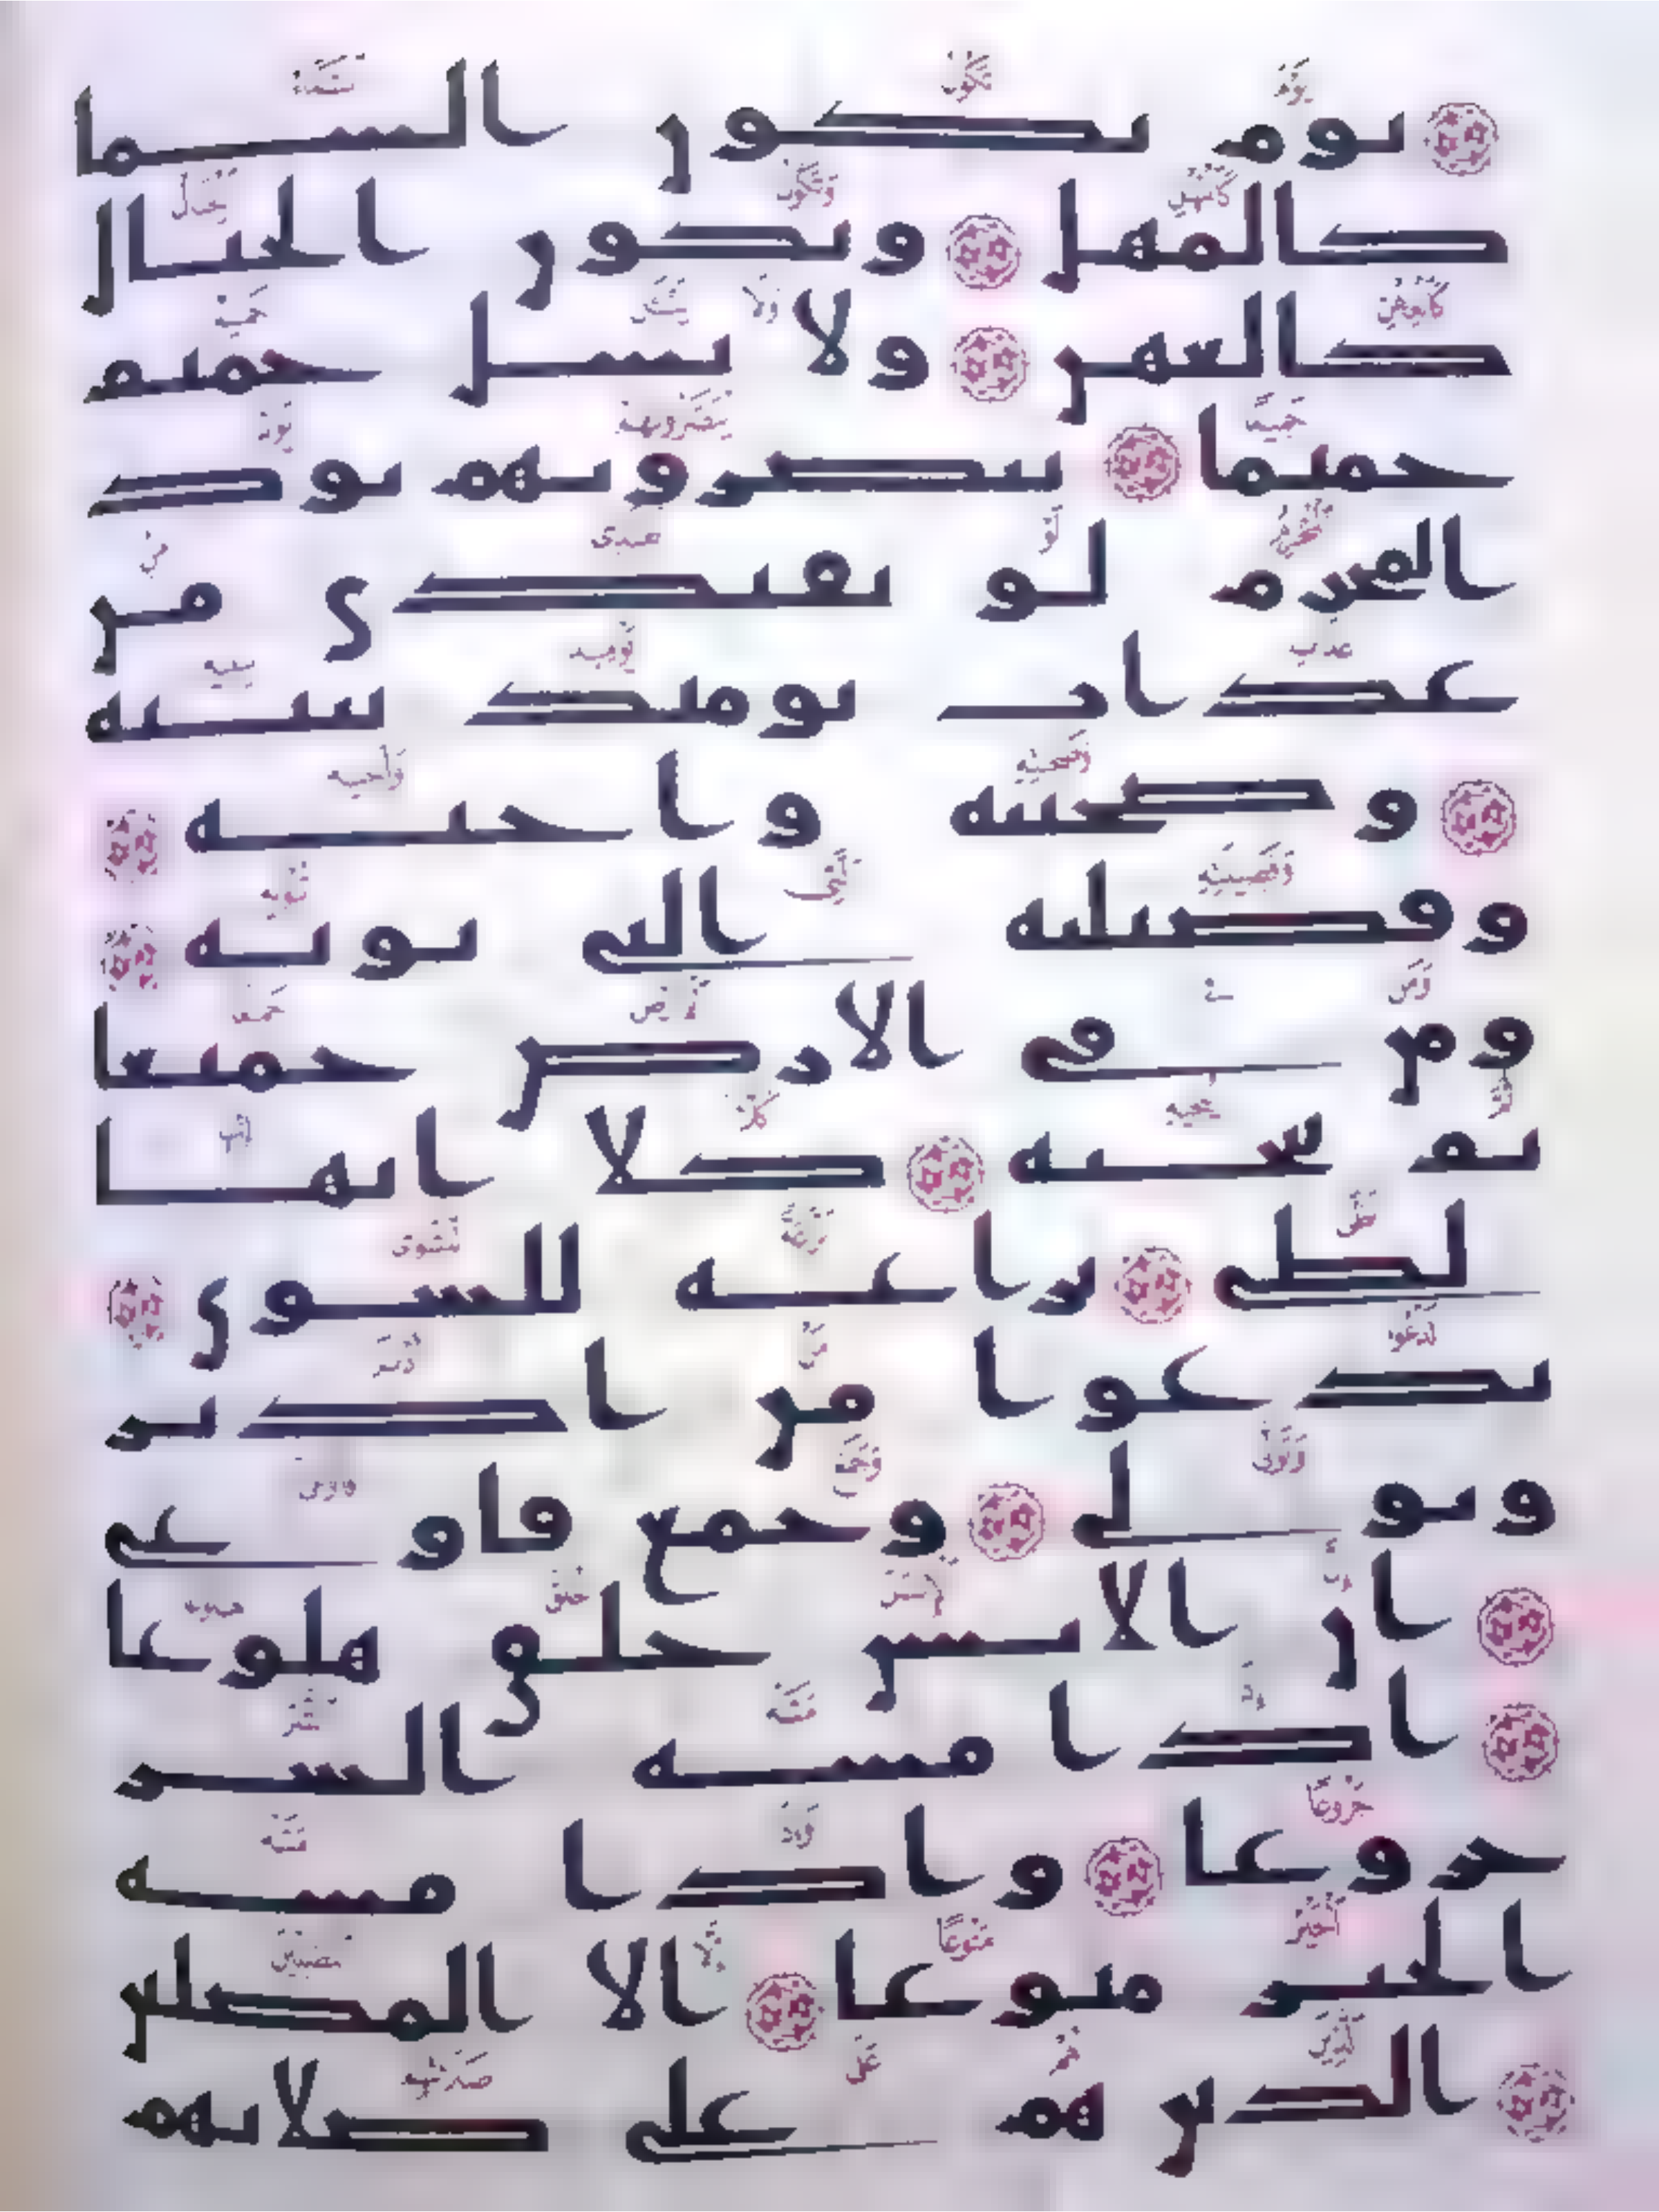 يوم تكون السما
كالمهل وتكون الجبال
كالعهن ولا يسل حميم
حميما يبصرونهم يود
المجرم لو يفتدي من
عذاب يومىذ ببنيه
وصحبته واخيه
وفصيلته التي تويه
ومن في الارض جميعا
ثم ينجيه كلا انها
لظى نزاعه للشوى
تدعوا من ادبر
وتولى وجمع فاوعى
ان الانسن خلق هلوعا
اذا مسه الشر
جزوعا واذا مسه
الخير منوعا الا المصلين
الذين هم على صلاتهم